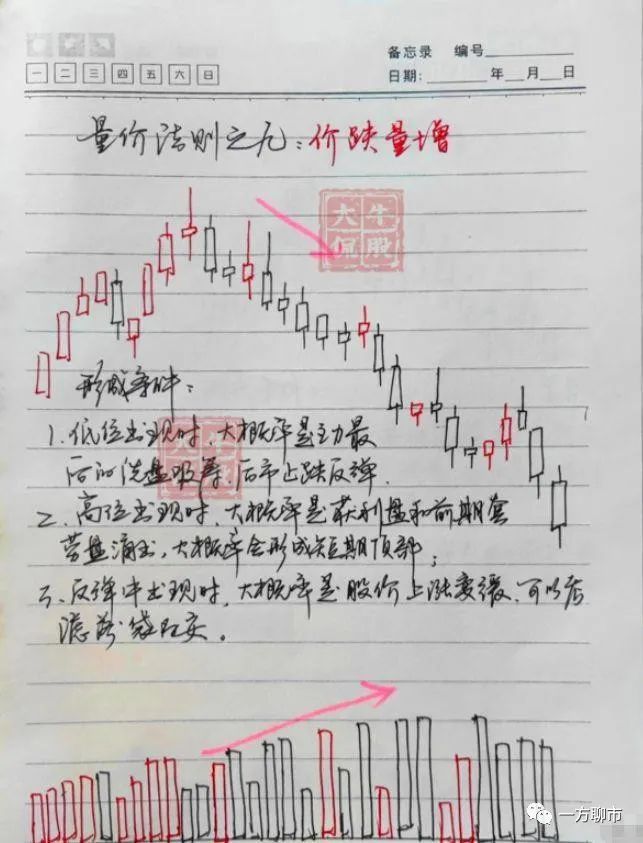 备忘录 编号
一 二 三 四 五 六 日
日期: 年 月 日
量价法则之九：价跌量增
大牛
侃股
形成条件：
1.低位出现时，大概率是主力最
后的洗盘吸筹，后市止跌反弹.
2.高位出现时，大概率是获利盘和前期套
劳盘涌出，大概率会形成短期顶部；
3.反弹中出现时，大概率是股价上涨变缓，可以考
虑落袋为安.
一方聊市